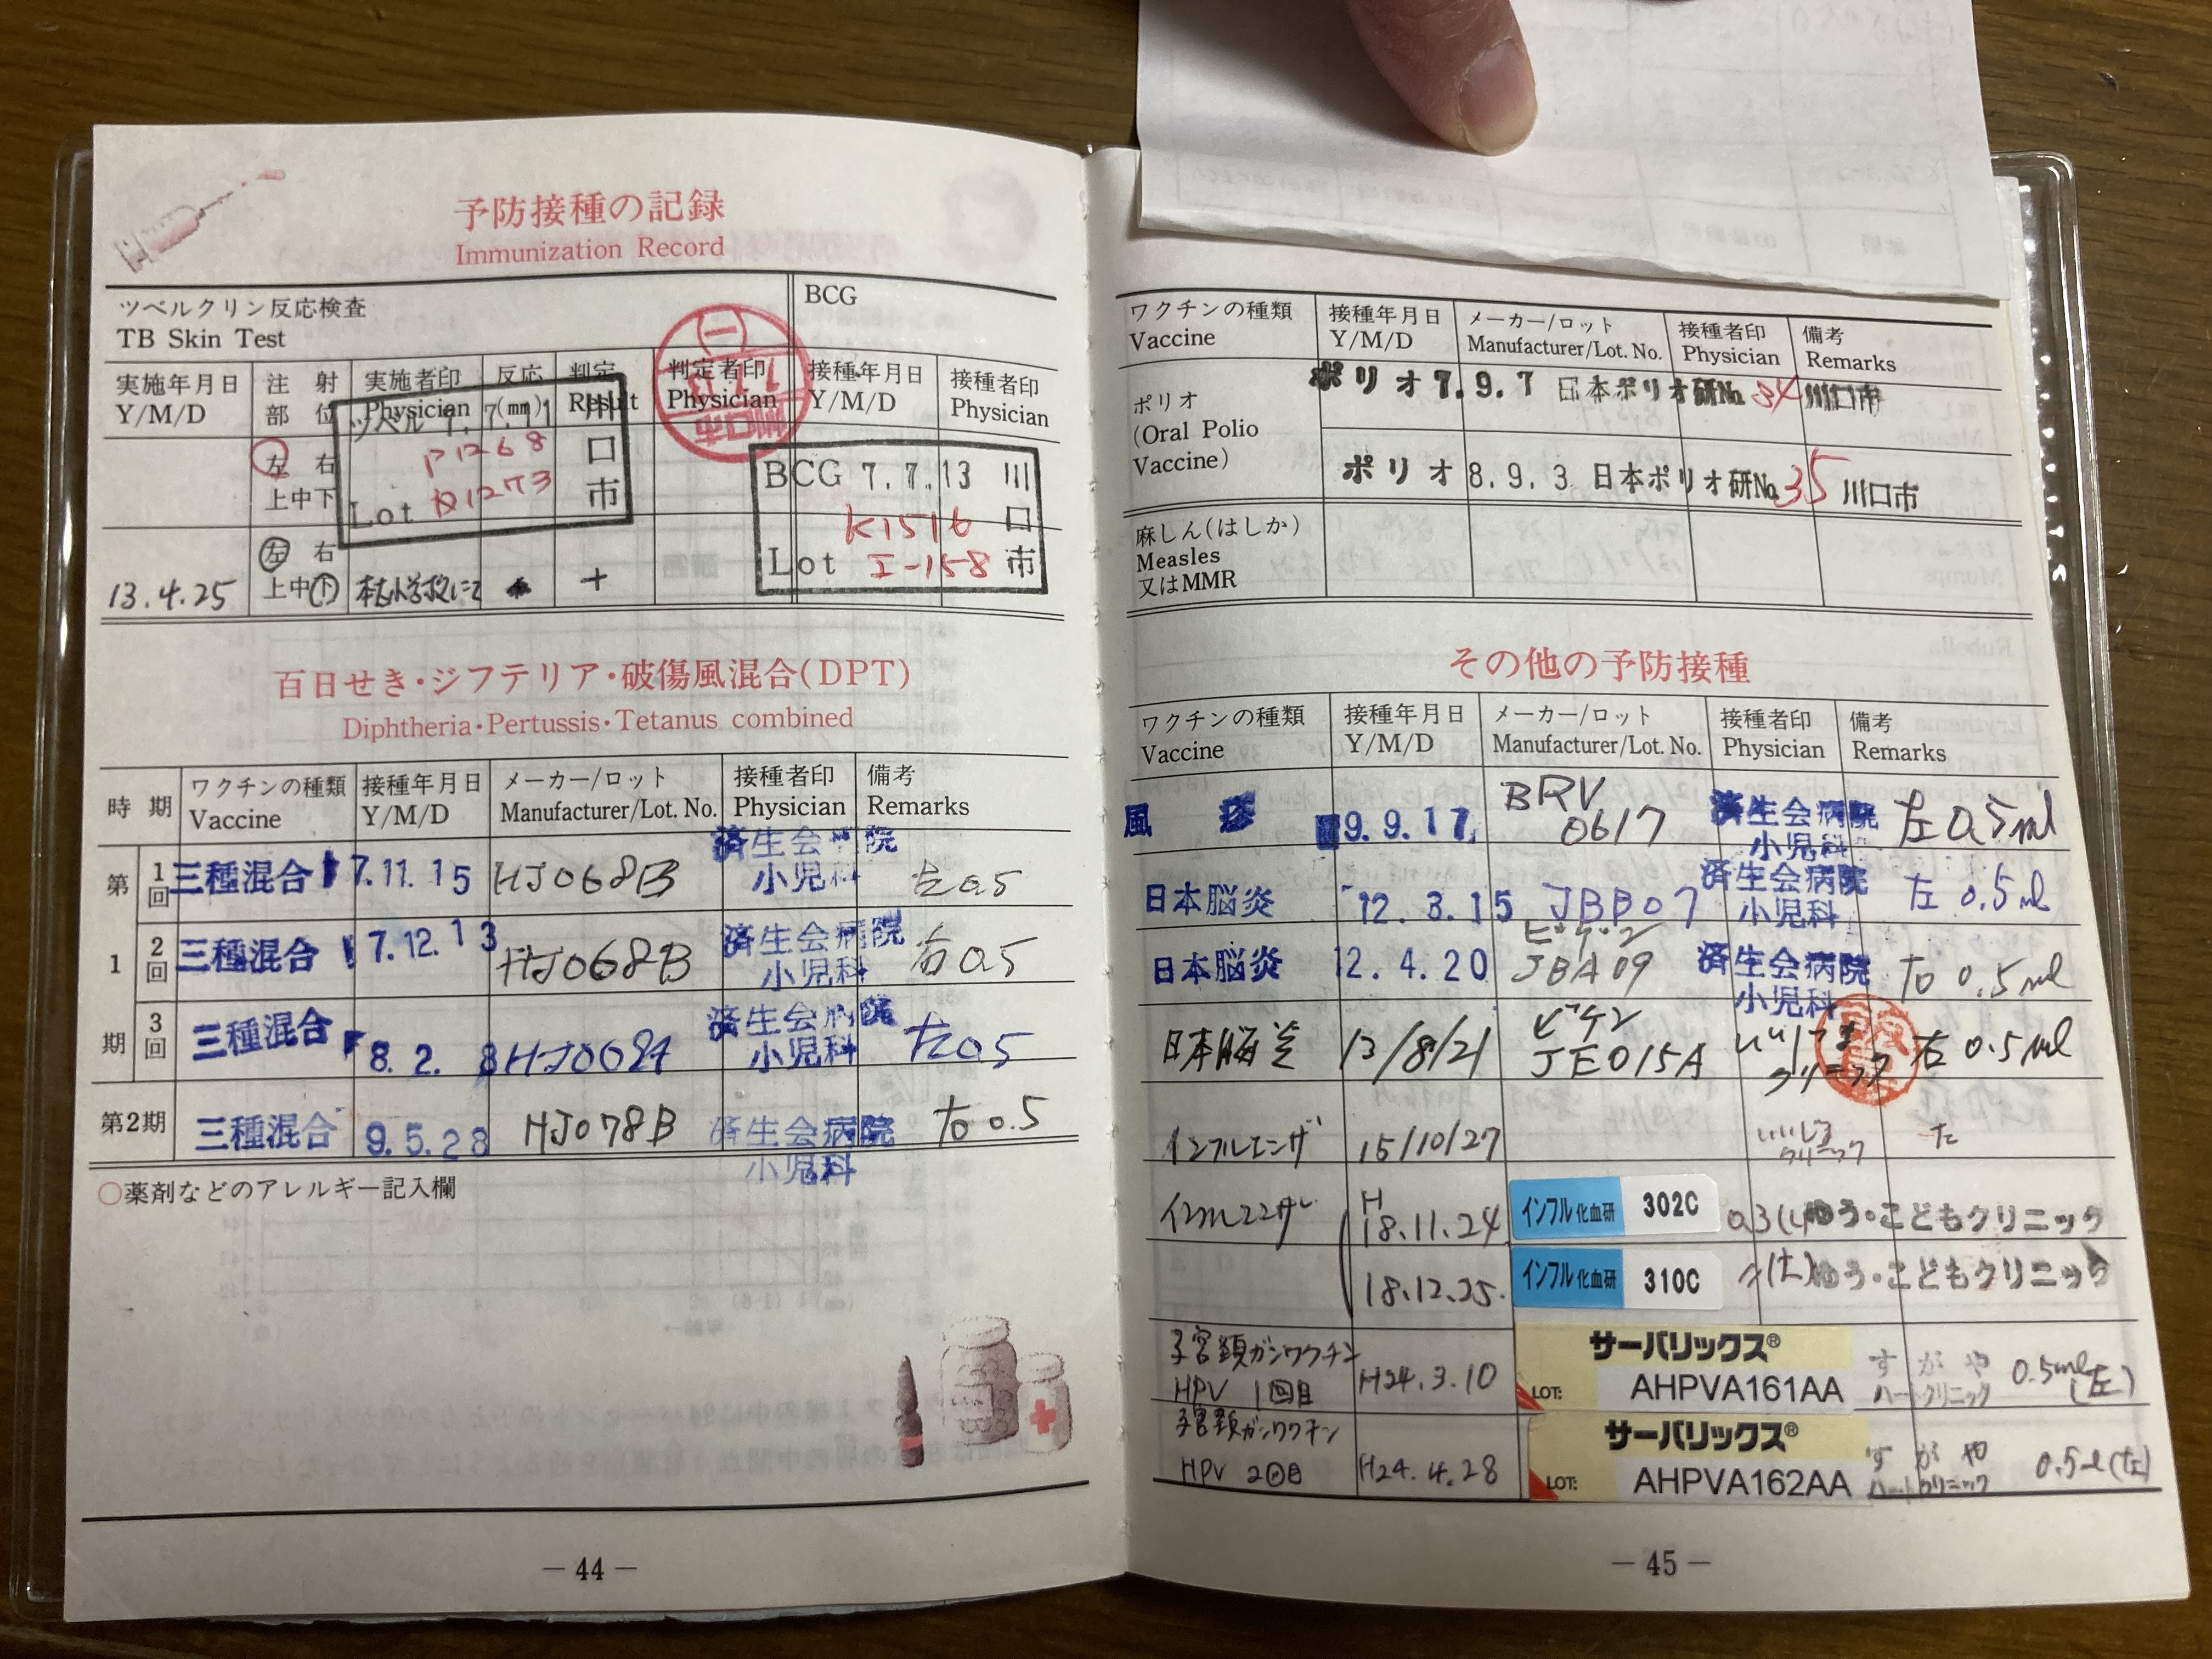 予防接種の記録
Immunization Record
ツベルクリン反応検査
TB Skin Test
BCG
実施年月日
Y/M/D
注射
部位
実施者印
Physician
反応
(mm)
判定
Result
判定者印
Physician
接種年月日
Y/M/D
接種者印
Physician
左 右
上中下
ツベル 7. 7. 11 川口市
P1268
Lot D1273
BCG 7.7.13 川口市
K1516
Lot I-158
13.4.25
左 右
上中下
+
百日せき・ジフテリア・破傷風混合(DPT)
Diphtheria・Pertussis・Tetanus combined
時 期
ワクチンの種類
Vaccine
接種年月日
Y/M/D
メーカー/ロット
Manufacturer/Lot. No.
接種者印
Physician
備考
Remarks
第1期
1回 三種混合 7.11.15 HJ068B 済生会病院 小児科 左0.5
2回 三種混合 7.12.13 HJ068B 済生会病院 小児科 右0.5
3回 三種混合 8.2.8 済生会病院 小児科 左0.5
第2期 三種混合 9.5.28 HJ078B 済生会病院 小児科 右0.5
○薬剤などのアレルギー記入欄
― 44 ―
ワクチンの種類
Vaccine
接種年月日
Y/M/D
メーカー/ロット
Manufacturer/Lot. No.
接種者印
Physician
備考
Remarks
ポリオ
(Oral Polio
Vaccine)
ポリオ 7.9.7 日本ポリオ研No. 34 川口市
ポリオ 8.9.3 日本ポリオ研No. 35 川口市
麻しん(はしか)
Measles
又はMMR
その他の予防接種
ワクチンの種類
Vaccine
接種年月日
Y/M/D
メーカー/ロット
Manufacturer/Lot. No.
接種者印
Physician
備考
Remarks
風 疹 9.9.17 BRV 0617 済生会病院 小児科 左0.5ml
日本脳炎 12.3.15 JBB07 済生会病院 小児科 左 0.5ml
日本脳炎 12.4.20 ビケン JBA09 済生会病院 小児科 右 0.5ml
日本脳炎 13/8/21 ビケン JE015A クリニック 左 0.5ml
インフルエンザ 15/10/27 クリニック 左
インフルエンザ H18.11.24 インフル 化血研 302C ゆう・こどもクリニック
18.12.25. インフル 化血研 310C ゆう・こどもクリニック
子宮頸ガンワクチン
HPV 1回目 H24.3.10 サーバリックス® LOT: AHPVA161AA すがや ハートクリニック 0.5ml (左)
子宮頸ガンワクチン
HPV 2回目 H24.4.28 サーバリックス® LOT: AHPVA162AA すがや ハートクリニック 0.5ml (左)
― 45 ―